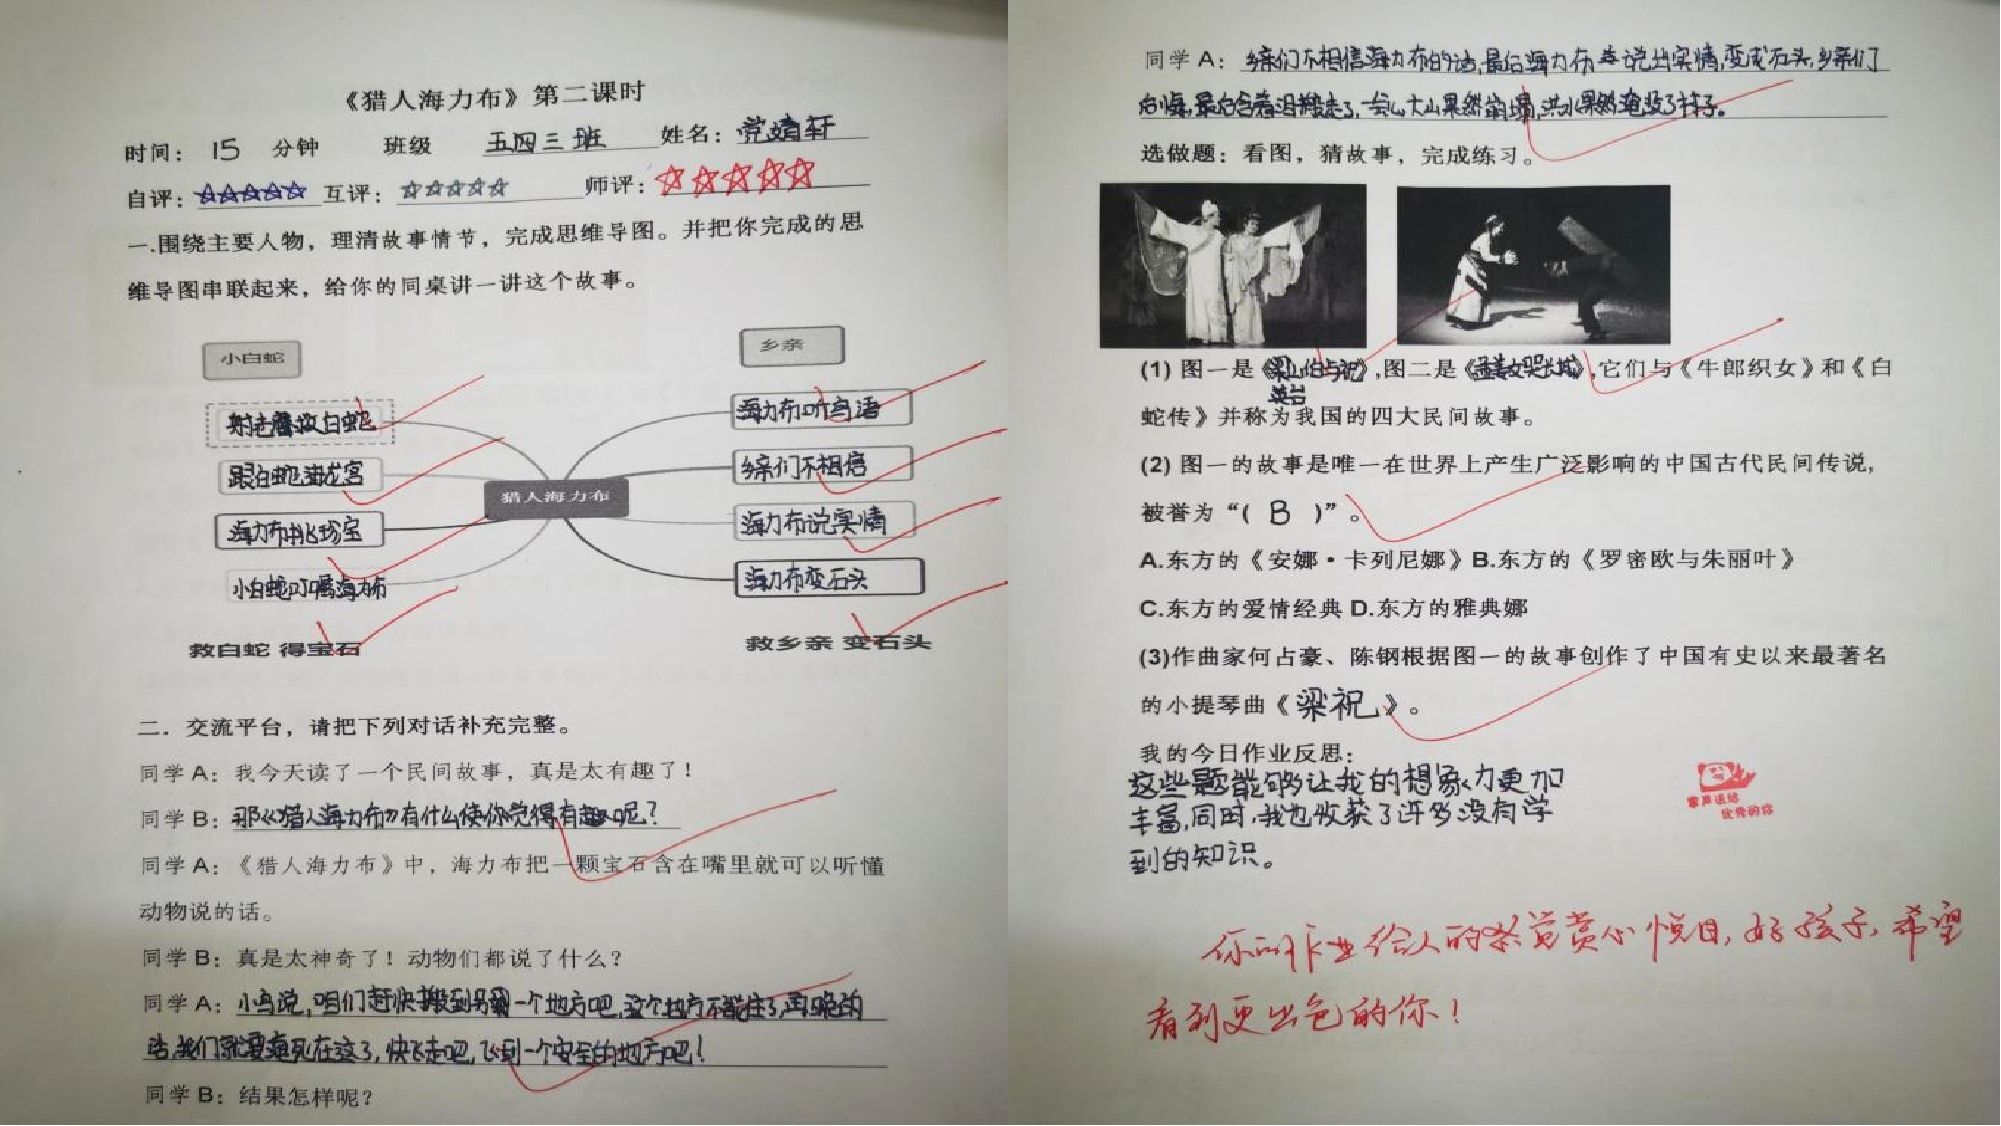 《猎人海力布》第二课时
时间： 15 分钟 班级 五四三班 姓名：党靖轩
自评：☆☆☆☆☆ 互评：☆☆☆☆☆ 师评：☆☆☆☆☆
一.围绕主要人物，理清故事情节，完成思维导图。并把你完成的思
维导图串联起来，给你的同桌讲一讲这个故事。
小白蛇
乡亲
救白蛇
海力布听鸟语
跟白蛇进龙宫
乡亲们不相信
猎人海力布
海力布挑珍宝
海力布说实情
小白蛇叮嘱海力布
海力布变石头
救白蛇 得宝石
救乡亲 变石头
二．交流平台，请把下列对话补充完整。
同学A：我今天读了一个民间故事，真是太有趣了！
同学B：那《猎人海力布》有什么使你觉得有趣呢？
同学A：《猎人海力布》中，海力布把一颗宝石含在嘴里就可以听懂
动物说的话。
同学B：真是太神奇了！动物们都说了什么？
同学A：小鸟说，咱们赶快搬到另一个地方吧，这个地方不能住了，再晚的
话，我们就要死在这了，快飞走吧，飞到一个安全的地方吧！
同学B：结果怎样呢？
同学A：乡亲们不相信海力布的话，最后海力布说出实情，变成石头，乡亲们
后悔，最后含着泪搬走了，大山果然崩塌，洪水果然淹没了村子。
选做题：看图，猜故事，完成练习。
(1) 图一是《梁山伯与祝英台》，图二是《孟姜女哭长城》，它们与《牛郎织女》和《白
蛇传》并称为我国的四大民间故事。
(2) 图一的故事是唯一在世界上产生广泛影响的中国古代民间传说，
被誉为“( B )”。
A.东方的《安娜·卡列尼娜》B.东方的《罗密欧与朱丽叶》
C.东方的爱情经典 D.东方的雅典娜
(3)作曲家何占豪、陈钢根据图一的故事创作了中国有史以来最著名
的小提琴曲《梁祝》。
我的今日作业反思：
这些题能够让我的想象力更加
丰富，同时，我也收获了许多没有学
到的知识。
掌声送给
优秀的你
你的作业给人的感觉赏心悦目，好孩子，希望
看到更出色的你！